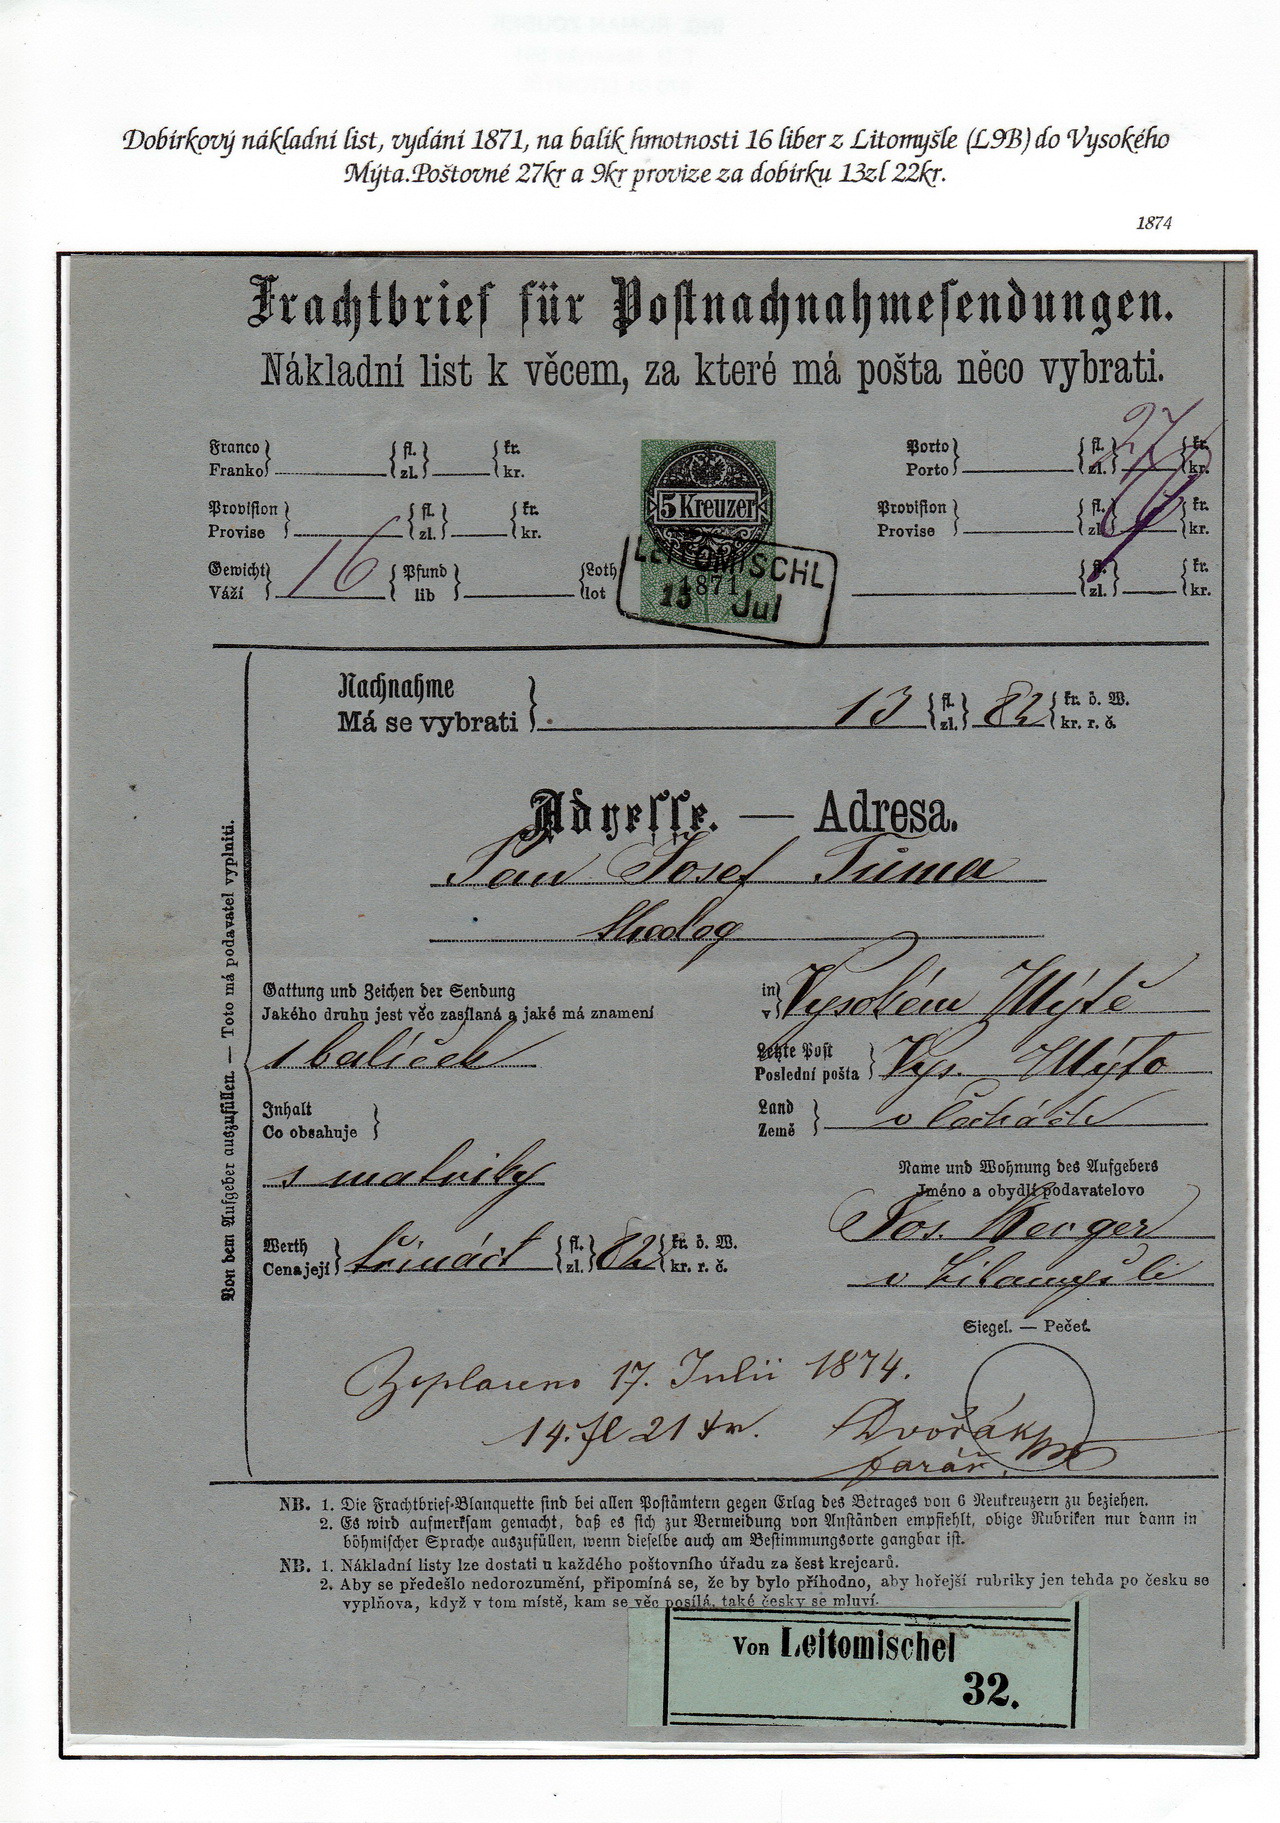 Dobírkový nákladní list, vydání 1871, na balík hmotnosti 16 liber z Litomyšle (L9B) do Vysokého
Mýta. Poštovné 27kr a 9kr provize za dobírku 13zl 22kr.
1874
Frachtbrief für Postnachnahmesendungen.
Nákladní list k věcem, za které má pošta něco vybrati.
Franco fl. kr.
Franko zl. kr.
Provision fl. kr.
Provise zl. kr.
Gewicht 16 Pfund Loth
Váží lib lot
5 Kreuzer
1871
LEITOMISCHL
15 Jul
Porto fl. 27 kr.
Porto zl. kr.
Provision fl. 9 kr.
Provise zl. kr.
fl. kr.
zl. kr.
Nachnahme 13 fl. 82 kr. ö. W.
Má se vybrati zl. kr. r. č.
Adresse. — Adresa.
Pan Josef Tůma
Gattung und Zeichen der Sendung
Jakého druhu jest věc zasílaná a jaké má znamení
1 balíček
in Vysokém Mýtě
v
Letzte Post Vys. Mýto
Poslední pošta
Inhalt
Co obsahuje
s matriky
Land v Čechách
Země
Name und Wohnung des Aufgebers
Jméno a obydlí podavatelovo
Jos.
v Litomyšli
Werth třináct fl. 82 kr. ö. W.
Cena její zl. kr. r. č.
Siegel. — Pečeť.
Von dem Aufgeber auszufüllen. — Toto má podavatel vyplniti.
Zaplaceno 17. Julii 1874.
14. fl 21 kr. Dvořák
farář.
NB. 1. Die Frachtbrief-Blanquette sind bei allen Postämtern gegen Erlag des Betrages von 6 Neukreuzern zu beziehen.
2. Es wird aufmerksam gemacht, daß es sich zur Vermeidung von Anständen empfiehlt, obige Rubriken nur dann in
böhmischer Sprache auszufüllen, wenn dieselbe auch am Bestimmungsorte gangbar ist.
NB. 1. Nákladní listy lze dostati u každého poštovního úřadu za šest krejcarů.
2. Aby se předešlo nedorozumění, připomíná se, že by bylo příhodno, aby hořejší rubriky jen tehda po česku se
vyplňova, když v tom místě, kam se věc posílá, také česky se mluví.
Von Leitomischel
32.